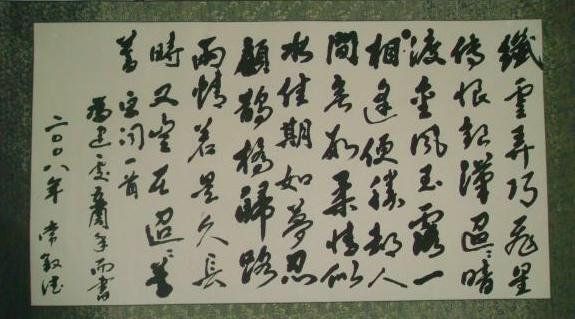 纖雲弄巧飛星
傳恨銀漢迢〻暗
渡金風玉露一
相逢便勝却人
間無數柔情似
水佳期如夢忍
顧鵲橋歸路
兩情若是久長
時又豈在朝〻暮
暮 宋词一首
而書
二〇〇八年 常敏